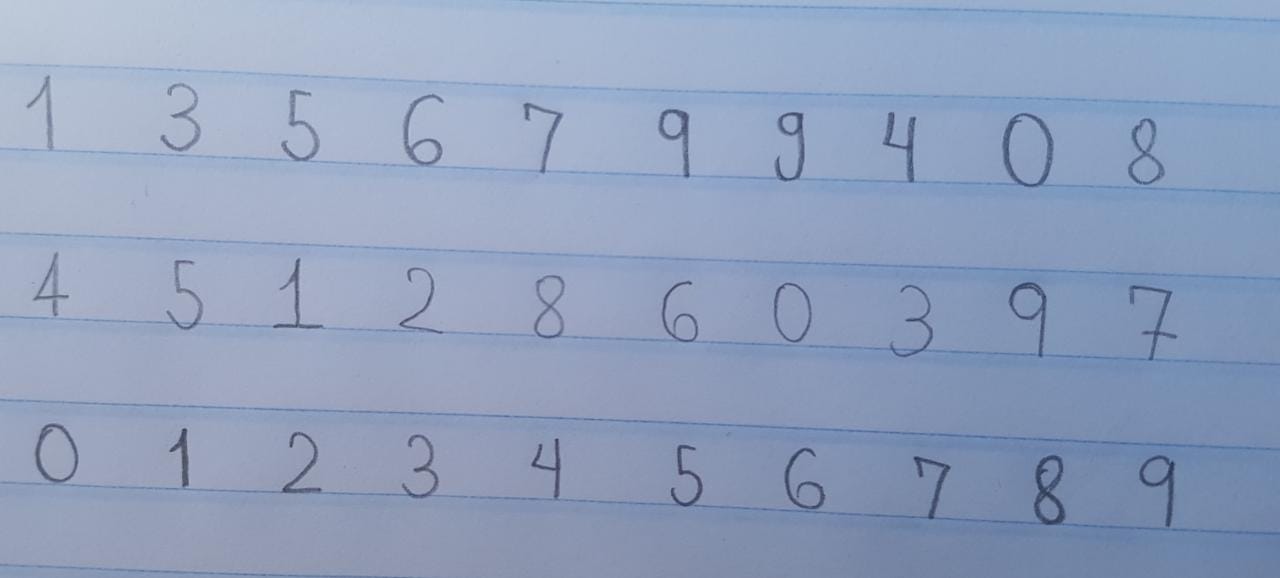 1 3 5 6 7 9 9 4 0 8
4 5 1 2 8 6 0 3 9 7
0 1 2 3 4 5 6 7 8 9